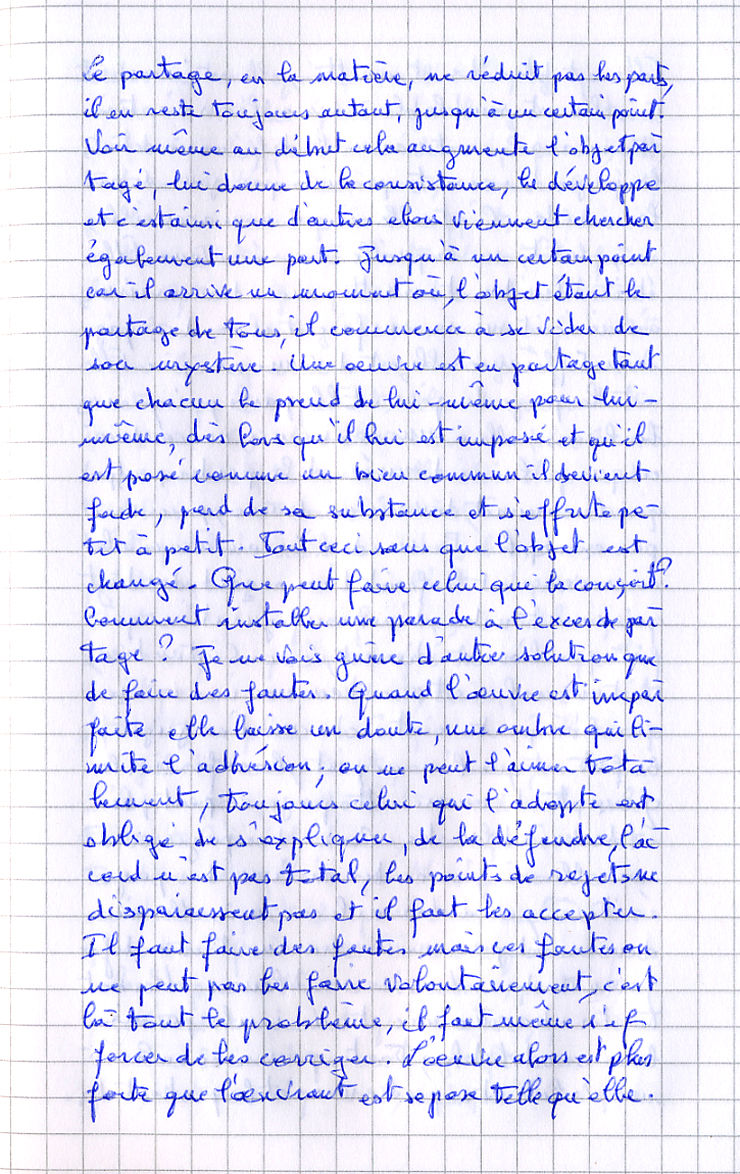 Le partage, en la matière, ne réduit pas les parts,
il en reste toujours autant, jusqu'à un certain point.
Voir même au début cela augmente l'objet par
tagé, lui donne de la consistance, le développe
et c'est ainsi que d'autres alors viennent chercher
également une part. Jusqu'à un certain point
car il arrive un moment où, l'objet étant le
partage de tous, il commence à se vider de
son mystère. Une oeuvre est en partage tant
que chacun le prend de lui-même pour lui-
même, dès lors qu'il lui est imposé et qu'il
est posé comme un bien commun il devient
fade, perd de sa substance et s'effrite pe-
tit à petit. Tout ceci sans que l'objet est
changé. Que peut faire celui qui la conçoit?
Comment installer une parade à l'excès de par
tage? Je ne vois guère d'autre solution que
de faire des fautes. Quand l'oeuvre est impar
faite elle laisse un doute, une ombre qui li-
mite l'adhésion; on ne peut l'aimer tota
lement, toujours celui qui l'adopte est
obligé de s'expliquer, de la défendre, l'ac
cord n'est pas total, les points de rejets ne
disparaissent pas et il faut les accepter.
Il faut faire des fautes mais ces fautes on
ne peut pas les faire volontairement, c'est
là tout le problème, il faut même s'ef
forcer de les corriger. L'oeuvre alors est plus
forte que l'oeuvrant est se pose telle qu'elle.